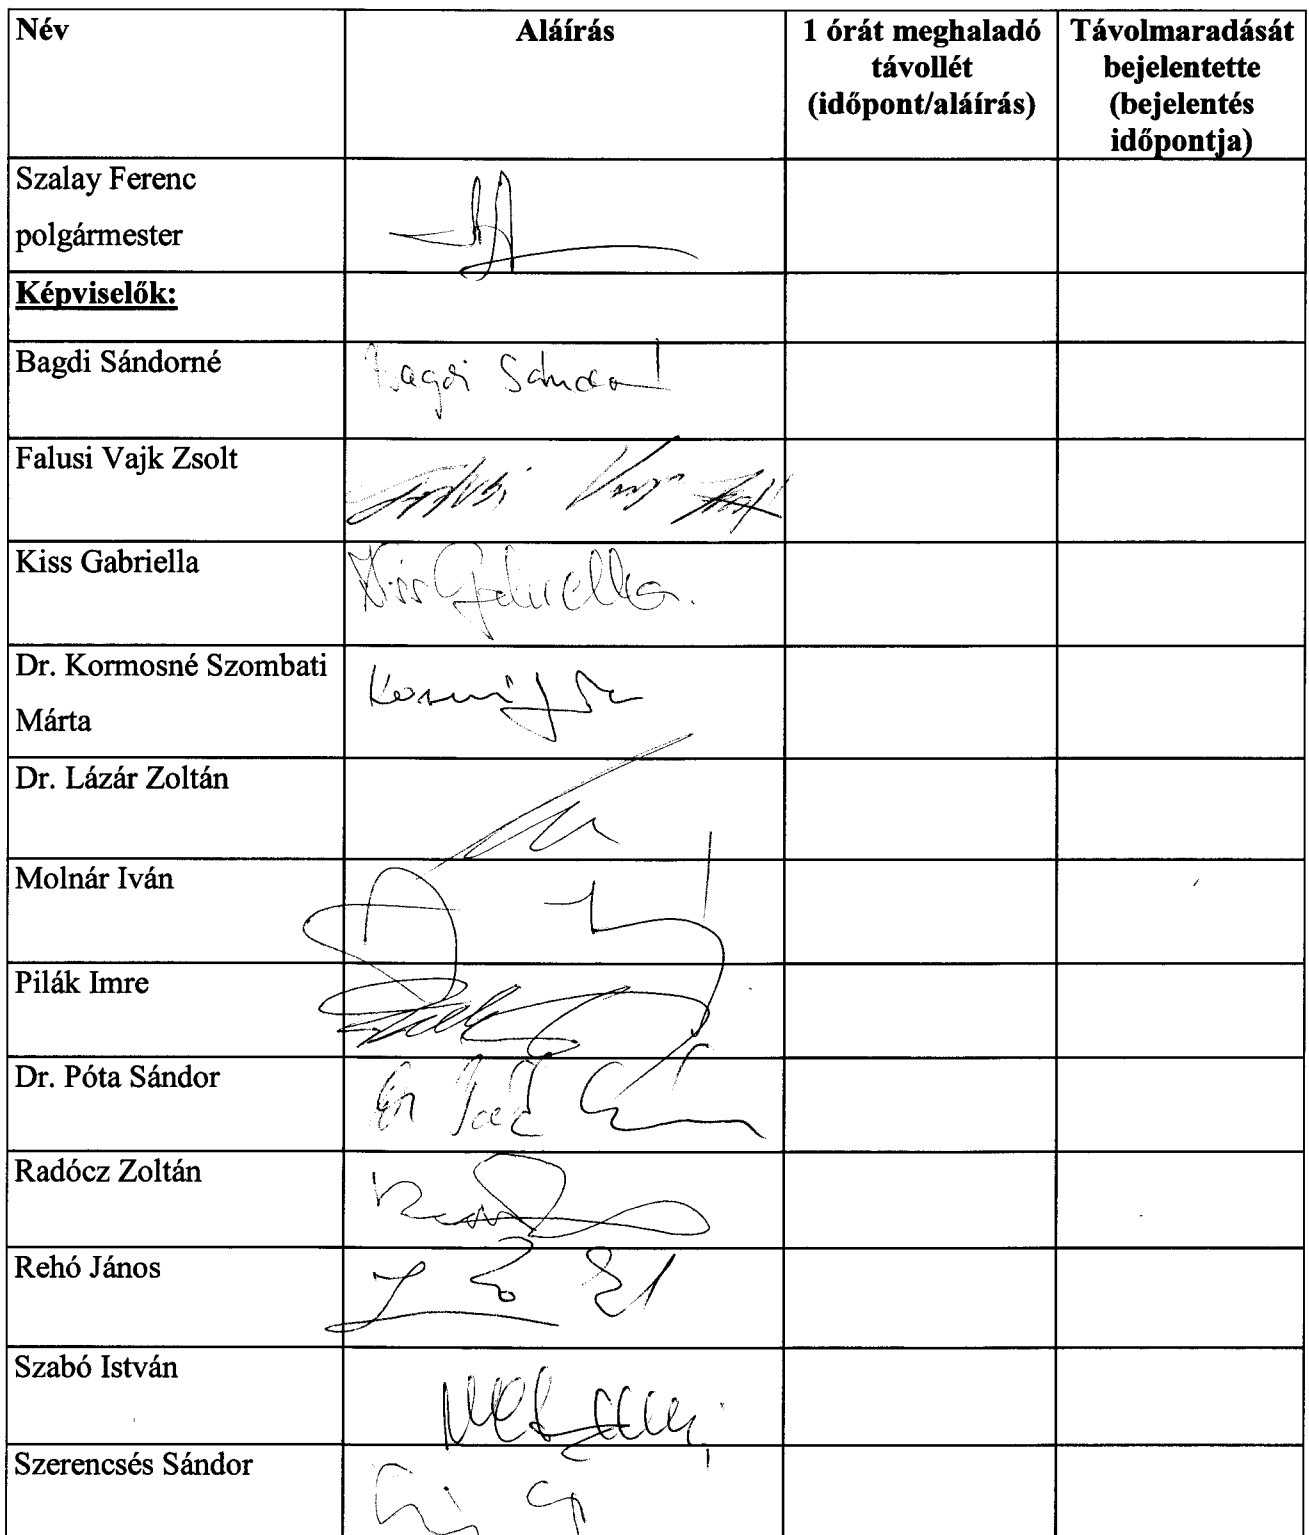 Név
Aláírás
1 órát meghaladó
távollét
(időpont/aláírás)
Távolmaradását
bejelentette
(bejelentés
időpontja)
Szalay Ferenc
polgármester
Képviselők:
Bagdi Sándorné
Bagdi Sándorné
Falusi Vajk Zsolt
Falusi Vajk Zsolt
Kiss Gabriella
Kiss Gabriella.
Dr. Kormosné Szombati
Márta
Dr. Lázár Zoltán
Molnár Iván
Pilák Imre
Dr. Póta Sándor
Radócz Zoltán
Rehó János
Szabó István
Szerencsés Sándor